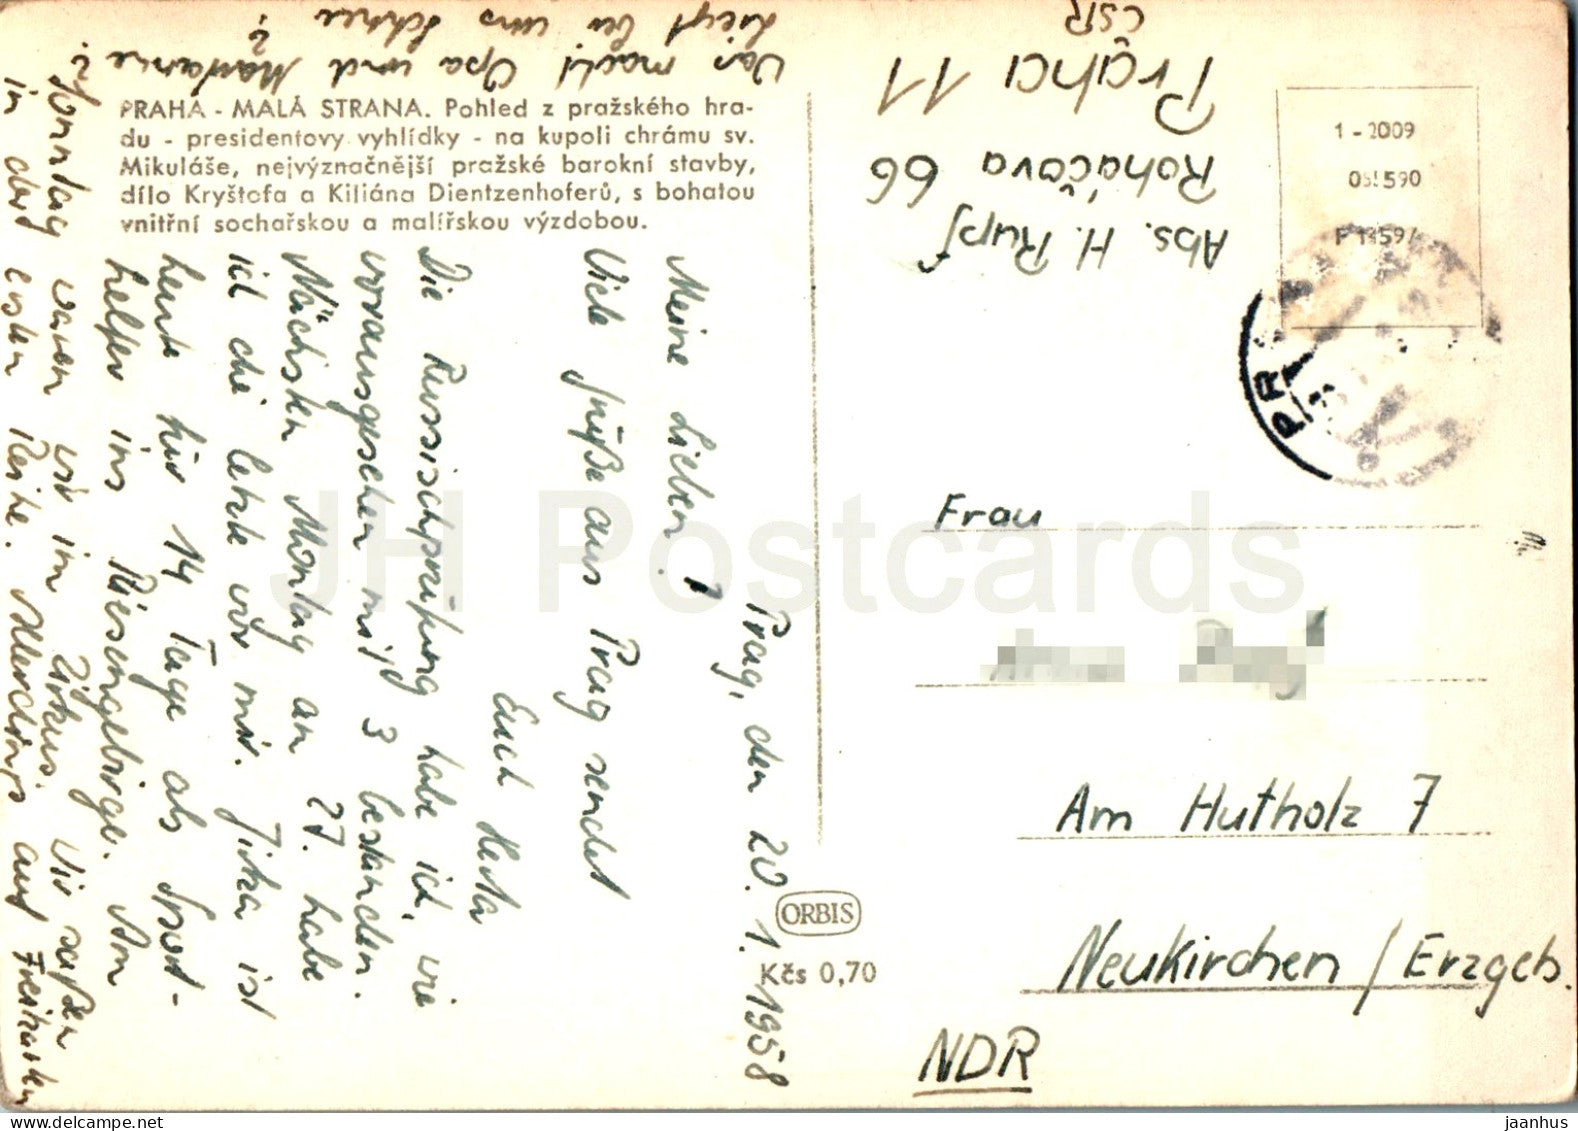 PRAHA - MALÁ STRANA. Pohled z pražského hra-
du - presidentovy vyhlídky - na kupoli chrámu sv.
Mikuláše, nejvýznačnější pražské barokní stavby,
dílo Kryštofa a Kiliána Dientzenhoferů, s bohatou
vnitřní sochařskou a malířskou výzdobou.
Prag, den 20. 1. 1958
Meine Lieben!
Viele Grüße aus Prag sendet
Euch Herta
Die Russischprüfung habe ich, wie
vorausgesehen mit 3 bestanden.
Nächsten Montag an 27. habe
ich die letzte vor mir. Jirka ist
heute für 14 Tage als Sport-
helfer ins Riesengebirge. Am
Sonntag waren wir im Zirkus. Wir saßen
in der ersten Reihe. Allerdings auf Freikarten
Was macht Opa und
Liegt bei uns Schnee?
Abs. H. Rupf
Roháčova 66
Praha 11
ČSR
1 - 2009
F
PR
Frau
Am Hutholz 7
Neukirchen / Erzgeb.
NDR
ORBIS
Kčs 0,70
JH Postcards
jaanhus